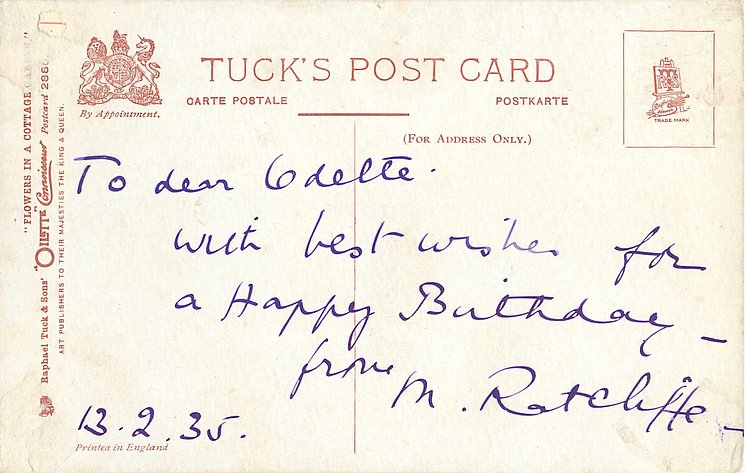 TUCK'S POST CARD
By Appointment.
CARTE POSTALE
POSTKARTE
(FOR ADDRESS ONLY.)
TRADE MARK
"FLOWERS IN A COTTAGE
Raphael Tuck & Sons' "OILETTE" Connoisseur Postcard
ART PUBLISHERS TO THEIR MAJESTIES THE KING & QUEEN.
To dear Odette.
with best wishes for
a Happy Birthday –
from M. Ratcliffe –
13.2.35.
Printed in England